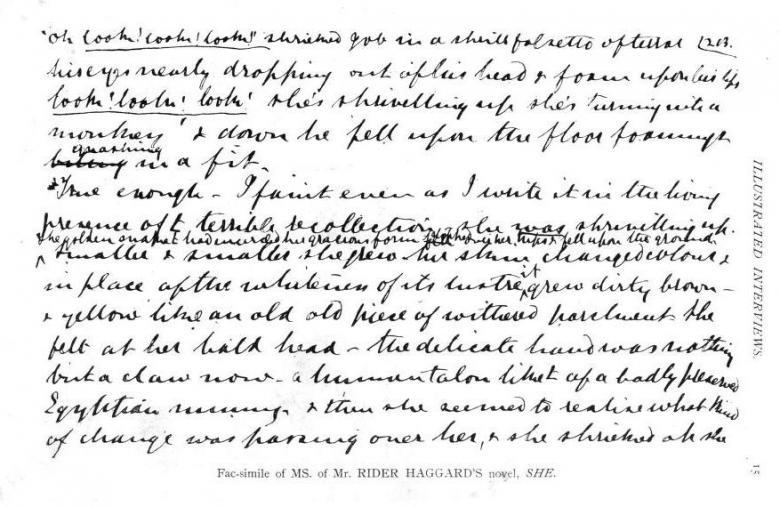 "oh look! look! look!" shrieked Job in a shrill falsetto of terror 213.
his eyes nearly dropping out of his head & foam upon his lips
look! look! look! she's shrivelling up she's turning into a
monkey' & down he fell upon the floor foaming &
gnashing
biting in a fit.
True enough – I faint even as I write it in the living
presence of that terrible recollection, she was shrivelling up.
the golden snake that had encircled her gracious form slipped over her hips & fell upon the ground
smaller & smaller she grew her skin changed colour &
in place of the whiteness of its lustre it grew dirty brown –
& yellow like an old old piece of withered parchment she
felt at her bald head – the delicate hand was nothing
but a claw now – a human talon like that of a badly preserved
Egyptian mummy & then she seemed to realise what kind
of change was passing over her, & she shrieked ah she
Fac-simile of MS. of Mr. RIDER HAGGARD'S novel, SHE.
ILLUSTRATED INTERVIEWS.
15